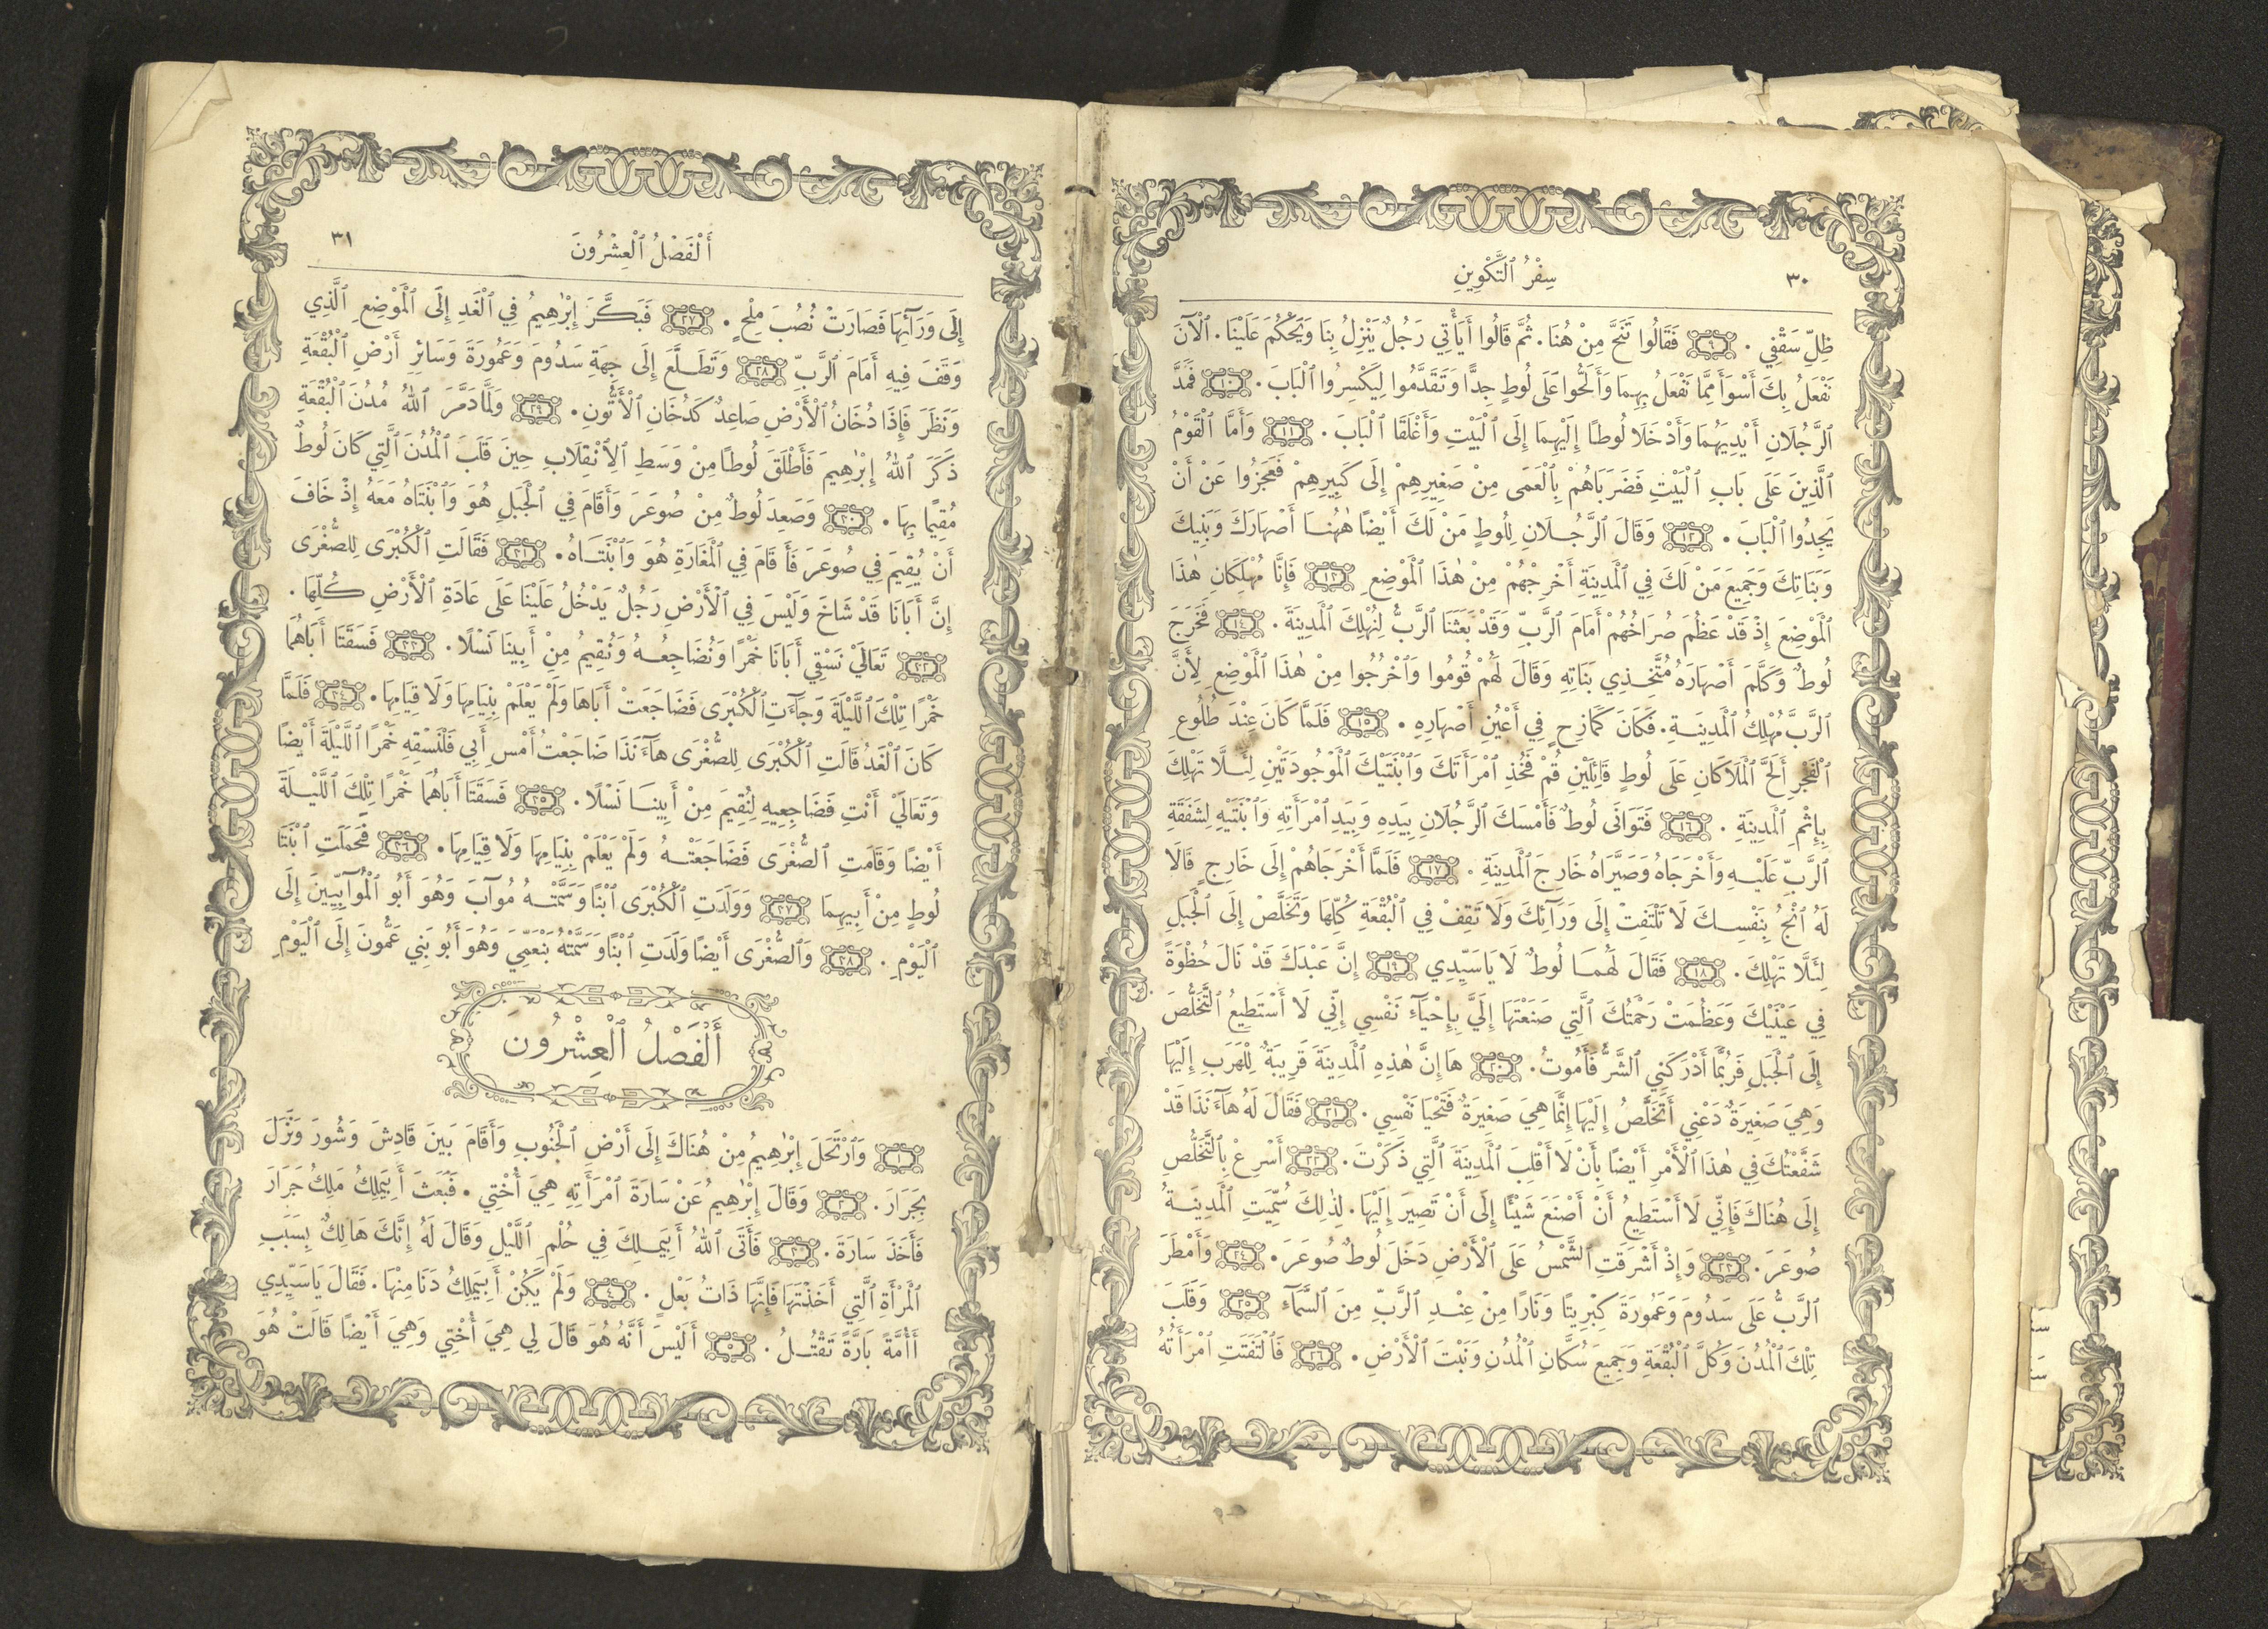 ٣٠
سِفْرُ ٱلتَّكْوِينِ
ظِلِّ سَقْفِي . ٩ فَقَالُوا تَنَحَّ مِنْ هُنَا . ثُمَّ قَالُوا أَيَأْتِي رَجُلٌ يَنْزِلُ بِنَا وَيَحْكُمَ عَلَيْنَا . ٱلْآنَ
نَفْعَلُ بِكَ أَسْوَأَ مِمَّا نَفْعَلُ بِهِمَا وَأَلَحُّوا عَلَى لُوطٍ جِدًّا وَتَقَدَّمُوا لِيَكْسِرُوا ٱلْبَابَ . ١٠ فَمَدَّ
ٱلرَّجُلَانِ أَيْدِيَهُمَا وَأَدْخَلَا لُوطًا إِلَيْهِمَا إِلَى ٱلْبَيْتِ وَأَغْلَقَا ٱلْبَابَ . ١١ وَأَمَّا ٱلْقَوْمُ
ٱلَّذِينَ عَلَى بَابِ ٱلْبَيْتِ فَضَرَبَاهُمْ بِٱلْعَمَى مِنْ صَغِيرِهِمْ إِلَى كَبِيرِهِمْ فَعَجَزُوا عَنْ أَنْ
يَجِدُوا ٱلْبَابَ . ١٢ وَقَالَ ٱلرَّجُلَانِ لِلُوطٍ مَنْ لَكَ أَيْضًا هٰهُنَا أَصْهَارَكَ وَبَنِيكَ
وَبَنَاتِكَ وَجَمِيعَ مَنْ لَكَ فِي ٱلْمَدِينَةِ أَخْرِجْهُمْ مِنْ هٰذَا ٱلْمَوْضِعِ ١٣ فَإِنَّا مُهْلِكَانِ هٰذَا
ٱلْمَوْضِعَ إِذْ قَدْ عَظُمَ صُرَاخُهُمْ أَمَامَ ٱلرَّبِّ وَقَدْ بَعَثَنَا ٱلرَّبُّ لِنُهْلِكَ ٱلْمَدِينَةَ . ١٤ فَخَرَجَ
لُوطٌ وَكَلَّمَ أَصْهَارَهُ مُتَّخِذِي بَنَاتِهِ وَقَالَ لَهُمْ قُومُوا وَٱخْرُجُوا مِنْ هٰذَا ٱلْمَوْضِعِ لِأَنَّ
ٱلرَّبَّ مُهْلِكُ ٱلْمَدِينَةِ . فَكَانَ كَمَازِحٍ فِي أَعْيُنِ أَصْهَارِهِ . ١٥ فَلَمَّا كَانَ عِنْدَ طُلُوعِ
ٱلْفَجْرِ أَلَحَّ ٱلْمَلَاكَانِ عَلَى لُوطٍ قَائِلَيْنِ قُمْ فَخُذِ ٱمْرَأَتَكَ وَٱبْنَتَيْكَ ٱلْمَوْجُودَتَيْنِ لِئَلَّا تَهْلِكَ
بِإِثْمِ ٱلْمَدِينَةِ . ١٦ فَتَوَانَى لُوطٌ فَأَمْسَكَ ٱلرَّجُلَانِ بِيَدِهِ وَبِيَدِ ٱمْرَأَتِهِ وَٱبْنَتَيْهِ لِشَفَقَةِ
ٱلرَّبِّ عَلَيْهِ وَأَخْرَجَاهُ وَصَيَّرَاهُ خَارِجَ ٱلْمَدِينَةِ . ١٧ فَلَمَّا أَخْرَجَاهُمْ إِلَى خَارِجٍ قَالَا
لَهُ ٱنْجُ بِنَفْسِكَ لَا تَلْتَفِتْ إِلَى وَرَآئِكَ وَلَا تَقِفْ فِي ٱلْبُقْعَةِ كُلِّهَا وَتَخَلَّصْ إِلَى ٱلْجَبَلِ
لِئَلَّا تَهْلِكَ . ١٨ فَقَالَ لَهُمَا لُوطٌ لَا يَا سَيِّدِي ١٩ إِنَّ عَبْدَكَ قَدْ نَالَ حُظْوَةً
فِي عَيْنَيْكَ وَعَظُمَتْ رَحْمَتُكَ ٱلَّتِي صَنَعْتَهَا إِلَيَّ بِإِحْيَآءِ نَفْسِي إِنِّي لَا أَسْتَطِيعُ ٱلتَّخَلُّصَ
إِلَى ٱلْجَبَلِ فَرُبَّمَا أَدْرَكَنِي ٱلشَّرُّ فَأَمُوتُ . ٢٠ هَا إِنَّ هٰذِهِ ٱلْمَدِينَةَ قَرِيبَةٌ لِلْهَرَبِ إِلَيْهَا
وَهِيَ صَغِيرَةٌ دَعْنِي أَتَخَلَّصُ إِلَيْهَا إِنَّمَا هِيَ صَغِيرَةٌ فَتَحْيَا نَفْسِي . ٢١ فَقَالَ لَهُ هَآءَنَذَا قَدْ
شَفَّعْتُكَ فِي هٰذَا ٱلْأَمْرِ أَيْضًا بِأَنْ لَا أَقْلِبَ ٱلْمَدِينَةَ ٱلَّتِي ذَكَرْتَ . ٢٢ أَسْرِعْ بِٱلتَّخَلُّصِ
إِلَى هُنَاكَ فَإِنِّي لَا أَسْتَطِيعُ أَنْ أَصْنَعَ شَيْئًا إِلَى أَنْ تَصِيرَ إِلَيْهَا . لِذٰلِكَ سُمِّيَتِ ٱلْمَدِينَةُ
صُوعَرَ . ٢٣ وَإِذْ أَشْرَقَتِ ٱلشَّمْسُ عَلَى ٱلْأَرْضِ دَخَلَ لُوطٌ صُوعَرَ . ٢٤ وَأَمْطَرَ
ٱلرَّبُّ عَلَى سَدُومَ وَعَمُورَةَ كِبْرِيتًا وَنَارًا مِنْ عِنْدِ ٱلرَّبِّ مِنَ ٱلسَّمَآءِ ٢٥ وَقَلَبَ
تِلْكَ ٱلْمُدُنَ وَكُلَّ ٱلْبُقْعَةِ وَجَمِيعَ سُكَّانِ ٱلْمُدُنِ وَنَبْتَ ٱلْأَرْضِ . ٢٦ فَٱلْتَفَتَتِ ٱمْرَأَتُهُ
أَلْفَصْلُ ٱلْعِشْرُونَ
٣١
إِلَى وَرَآئِهَا فَصَارَتْ نُصُبَ مِلْحٍ . ٢٧ فَبَكَّرَ إِبْرٰهِيمُ فِي ٱلْغَدِ إِلَى ٱلْمَوْضِعِ ٱلَّذِي
وَقَفَ فِيهِ أَمَامَ ٱلرَّبِّ ٢٨ وَتَطَلَّعَ إِلَى جِهَةِ سَدُومَ وَعَمُورَةَ وَسَائِرِ أَرْضِ ٱلْبُقْعَةِ
وَنَظَرَ فَإِذَا دُخَانُ ٱلْأَرْضِ صَاعِدٌ كَدُخَانِ ٱلْأَتُّونِ . ٢٩ وَلَمَّا دَمَّرَ ٱللهُ مُدُنَ ٱلْبُقْعَةِ
ذَكَرَ ٱللهُ إِبْرٰهِيمَ فَأَطْلَقَ لُوطًا مِنْ وَسَطِ ٱلِٱنْقِلَابِ حِينَ قَلَبَ ٱلْمُدُنَ ٱلَّتِي كَانَ لُوطٌ
مُقِيمًا بِهَا . ٣٠ وَصَعِدَ لُوطٌ مِنْ صُوعَرَ وَأَقَامَ فِي ٱلْجَبَلِ هُوَ وَٱبْنَتَاهُ مَعَهُ إِذْ خَافَ
أَنْ يُقِيمَ فِي صُوعَرَ فَأَقَامَ فِي ٱلْمَغَارَةِ هُوَ وَٱبْنَتَاهُ . ٣١ فَقَالَتِ ٱلْكُبْرَى لِلصُّغْرَى
إِنَّ أَبَانَا قَدْ شَاخَ وَلَيْسَ فِي ٱلْأَرْضِ رَجُلٌ يَدْخُلُ عَلَيْنَا عَلَى عَادَةِ ٱلْأَرْضِ كُلِّهَا .
٣٢ تَعَالَيْ نَسْقِي أَبَانَا خَمْرًا وَنُضَاجِعُهُ وَنُقِيمُ مِنْ أَبِينَا نَسْلًا . ٣٣ فَسَقَتَا أَبَاهُمَا
خَمْرًا تِلْكَ ٱللَّيْلَةَ وَجَآءَتِ ٱلْكُبْرَى فَضَاجَعَتْ أَبَاهَا وَلَمْ يَعْلَمْ بِنِيَامِهَا وَلَا قِيَامِهَا . ٣٤ فَلَمَّا
كَانَ ٱلْغَدُ قَالَتِ ٱلْكُبْرَى لِلصُّغْرَى هَآءَنَذَا ضَاجَعْتُ أَمْسِ أَبِي فَلْنَسْقِهِ خَمْرًا ٱللَّيْلَةَ أَيْضًا
وَتَعَالَيْ أَنْتِ فَضَاجِعِيهِ لِنُقِيمَ مِنْ أَبِينَا نَسْلًا . ٣٥ فَسَقَتَا أَبَاهُمَا خَمْرًا تِلْكَ ٱللَّيْلَةَ
أَيْضًا وَقَامَتِ ٱلصُّغْرَى فَضَاجَعَتْهُ وَلَمْ يَعْلَمْ بِنِيَامِهَا وَلَا قِيَامِهَا . ٣٦ فَحَمَلَتِ ٱبْنَتَا
لُوطٍ مِنْ أَبِيهِمَا ٣٧ وَوَلَدَتِ ٱلْكُبْرَى ٱبْنًا وَسَمَّتْهُ مُوآبَ وَهُوَ أَبُو ٱلْمُوآبِيِّينَ إِلَى
ٱلْيَوْمِ . ٣٨ وَٱلصُّغْرَى أَيْضًا وَلَدَتِ ٱبْنًا وَسَمَّتْهُ بَنْعَمِّيَ وَهُوَ أَبُو بَنِي عَمُّونَ إِلَى ٱلْيَوْمِ
أَلْفَصْلُ ٱلْعِشْرُونَ
١ وَٱرْتَحَلَ إِبْرٰهِيمُ مِنْ هُنَاكَ إِلَى أَرْضِ ٱلْجَنُوبِ وَأَقَامَ بَيْنَ قَادِشَ وَشُورَ وَنَزَلَ
بِجَرَارَ . ٢ وَقَالَ إِبْرٰهِيمُ عَنْ سَارَةَ ٱمْرَأَتِهِ هِيَ أُخْتِي . فَبَعَثَ أَبِيمَلِكُ مَلِكُ جَرَارَ
فَأَخَذَ سَارَةَ . ٣ فَأَتَى ٱللهُ أَبِيمَلِكَ فِي حُلْمِ ٱللَّيْلِ وَقَالَ لَهُ إِنَّكَ هَالِكٌ بِسَبَبِ
ٱلْمَرْأَةِ ٱلَّتِي أَخَذْتَهَا فَإِنَّهَا ذَاتُ بَعْلٍ . ٤ وَلَمْ يَكُنْ أَبِيمَلِكُ دَنَا مِنْهَا . فَقَالَ يَا سَيِّدِي
أَأُمَّةً بَارَّةً تَقْتُلُ . ٥ أَلَيْسَ أَنَّهُ هُوَ قَالَ لِي هِيَ أُخْتِي وَهِيَ أَيْضًا قَالَتْ هُوَ